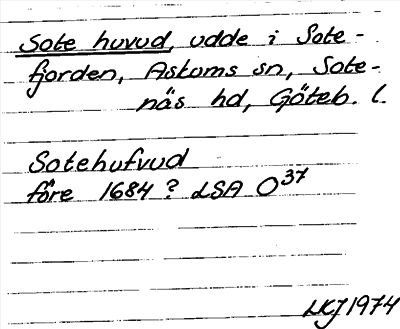 Sote huvud, udde i Sote-
fjorden, Askums sn, Sote-
näs hd, Göteb. l.
Sotehufvud
före 1684? LSA O37
LKJ 1974